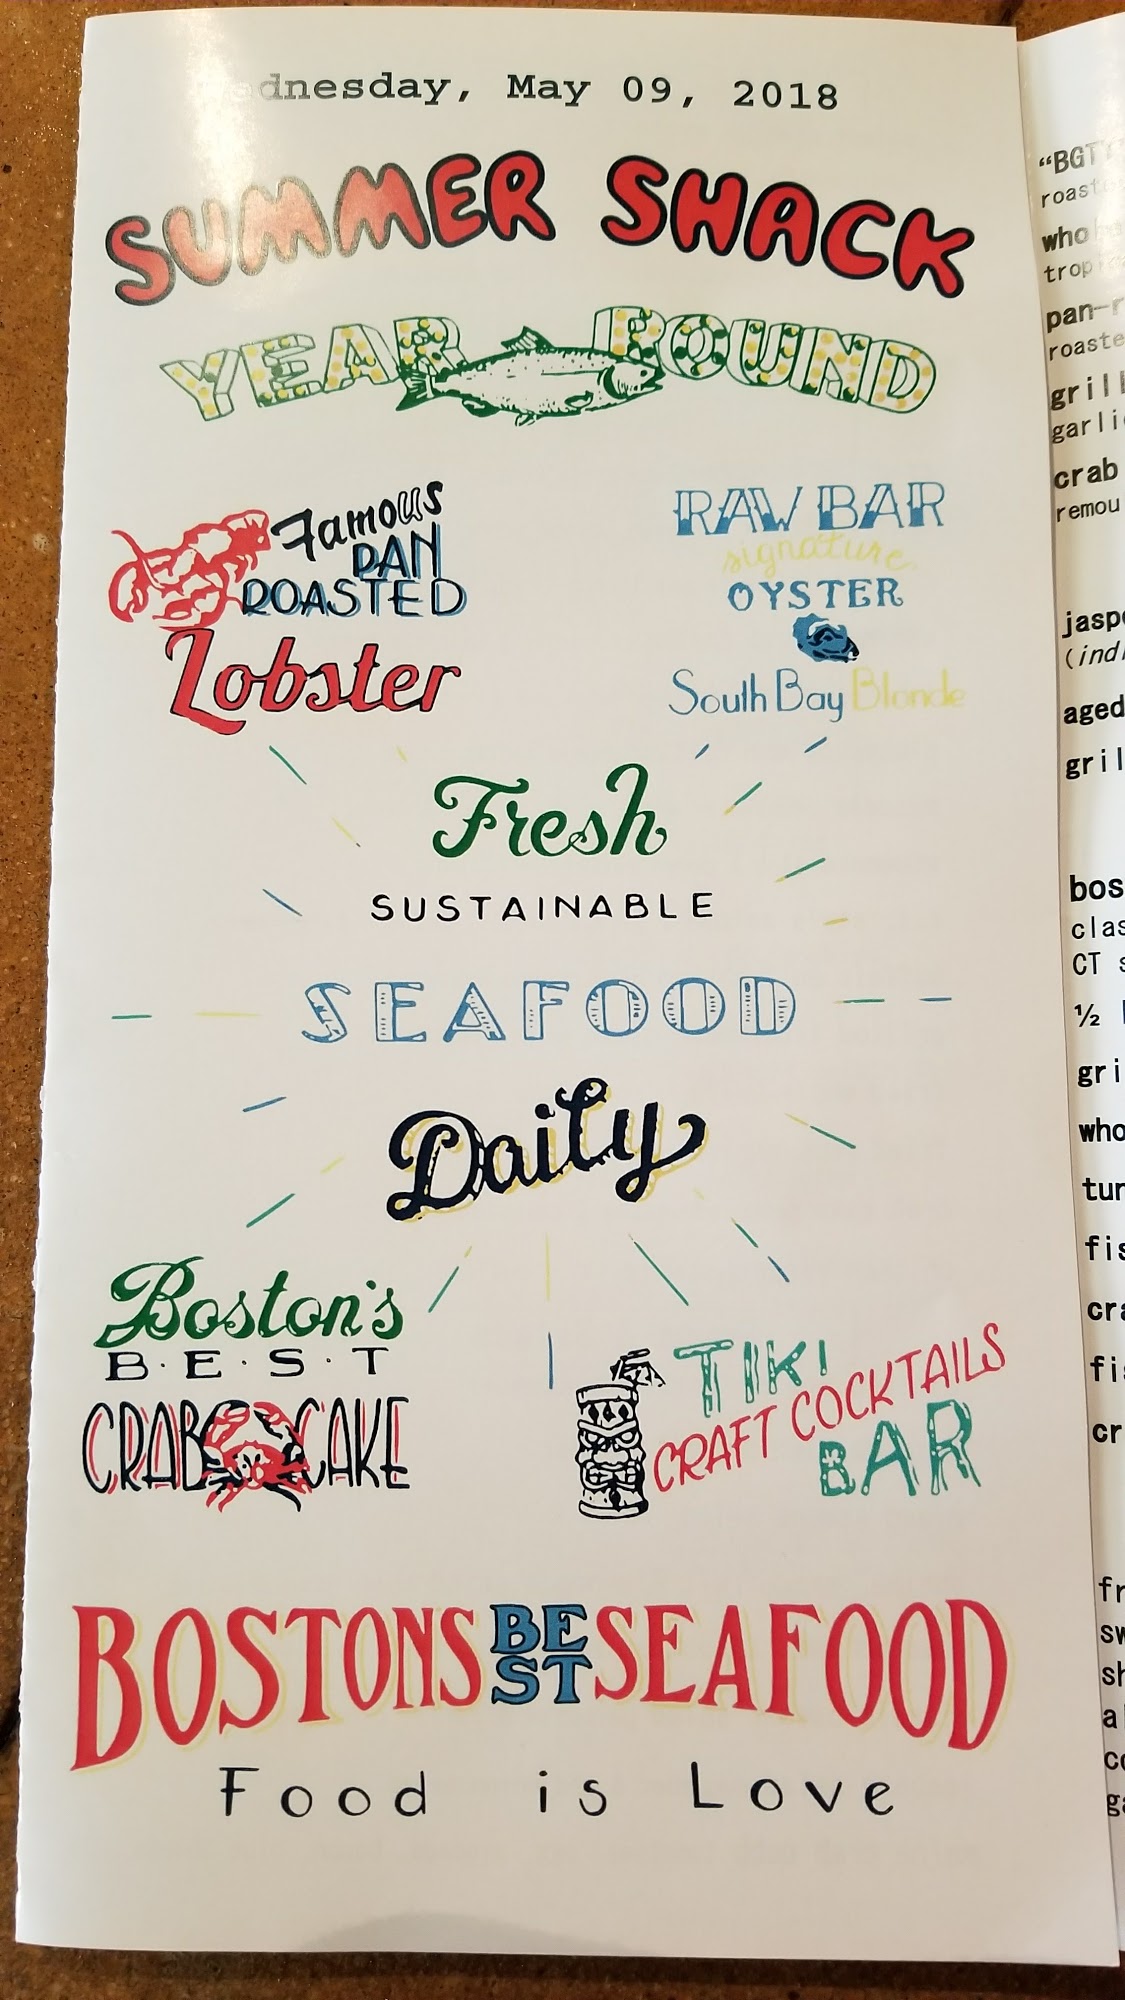 dnesday, May 09, 2018
SUMMER SHACK
YEAR ROUND
Famous
PAN
ROASTED
Lobster
RAW BAR
signature
OYSTER
South Bay Blonde
Fresh
SUSTAINABLE
SEAFOOD
Daily
Boston's
B·E·S·T
CRAB CAKE
TIKI
CRAFT COCKTAILS
BAR
BOSTONS BEST SEAFOOD
Food is Love
"BGT
roaste
who
trop
pan-r
roaste
gril
garli
crab
remou
jaspe
(indi
aged
gril
bos
clas
CT s
½
gri
who
tur
fis
cra
fis
cr
fr
sw
sh
a
co
ga